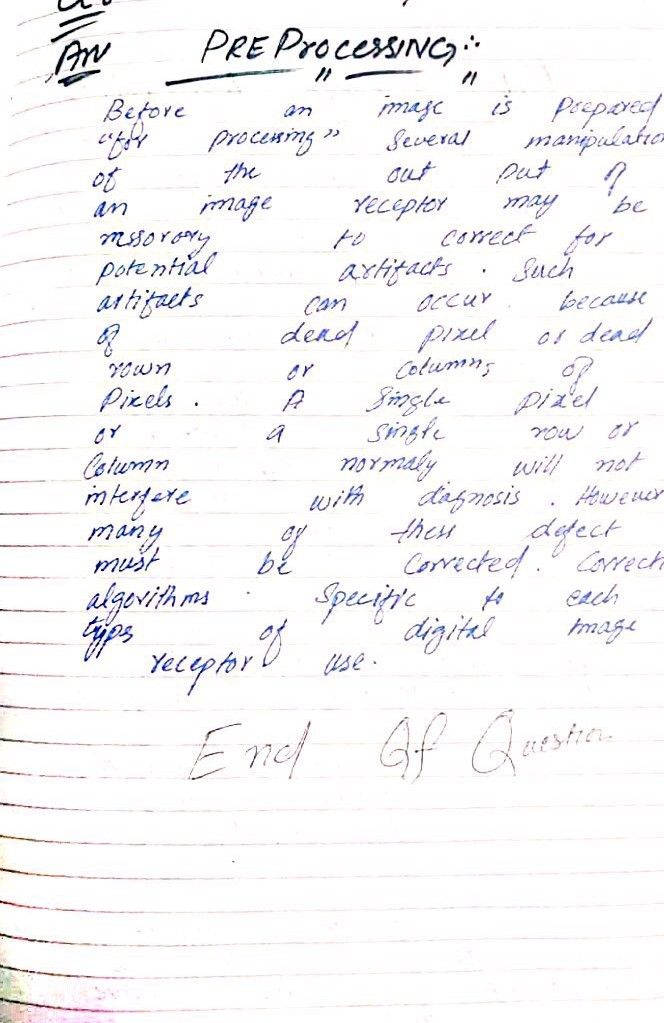 An PREProcessing:
Before an image is prepared
"for processing" several manipulation
of the out put of
an image receptor may be
to correct for
potential artifacts. Such
artifacts can occur. because
of dead pixel or dead
rown or columns of
Pixels. A Single pixel
or a single row or
Column normaly will not
interfere with diagnosis. However
many of thess defect
must be corrected. Correct
algorithms Specific to each
types of digital image
receptor use.
End Of Question